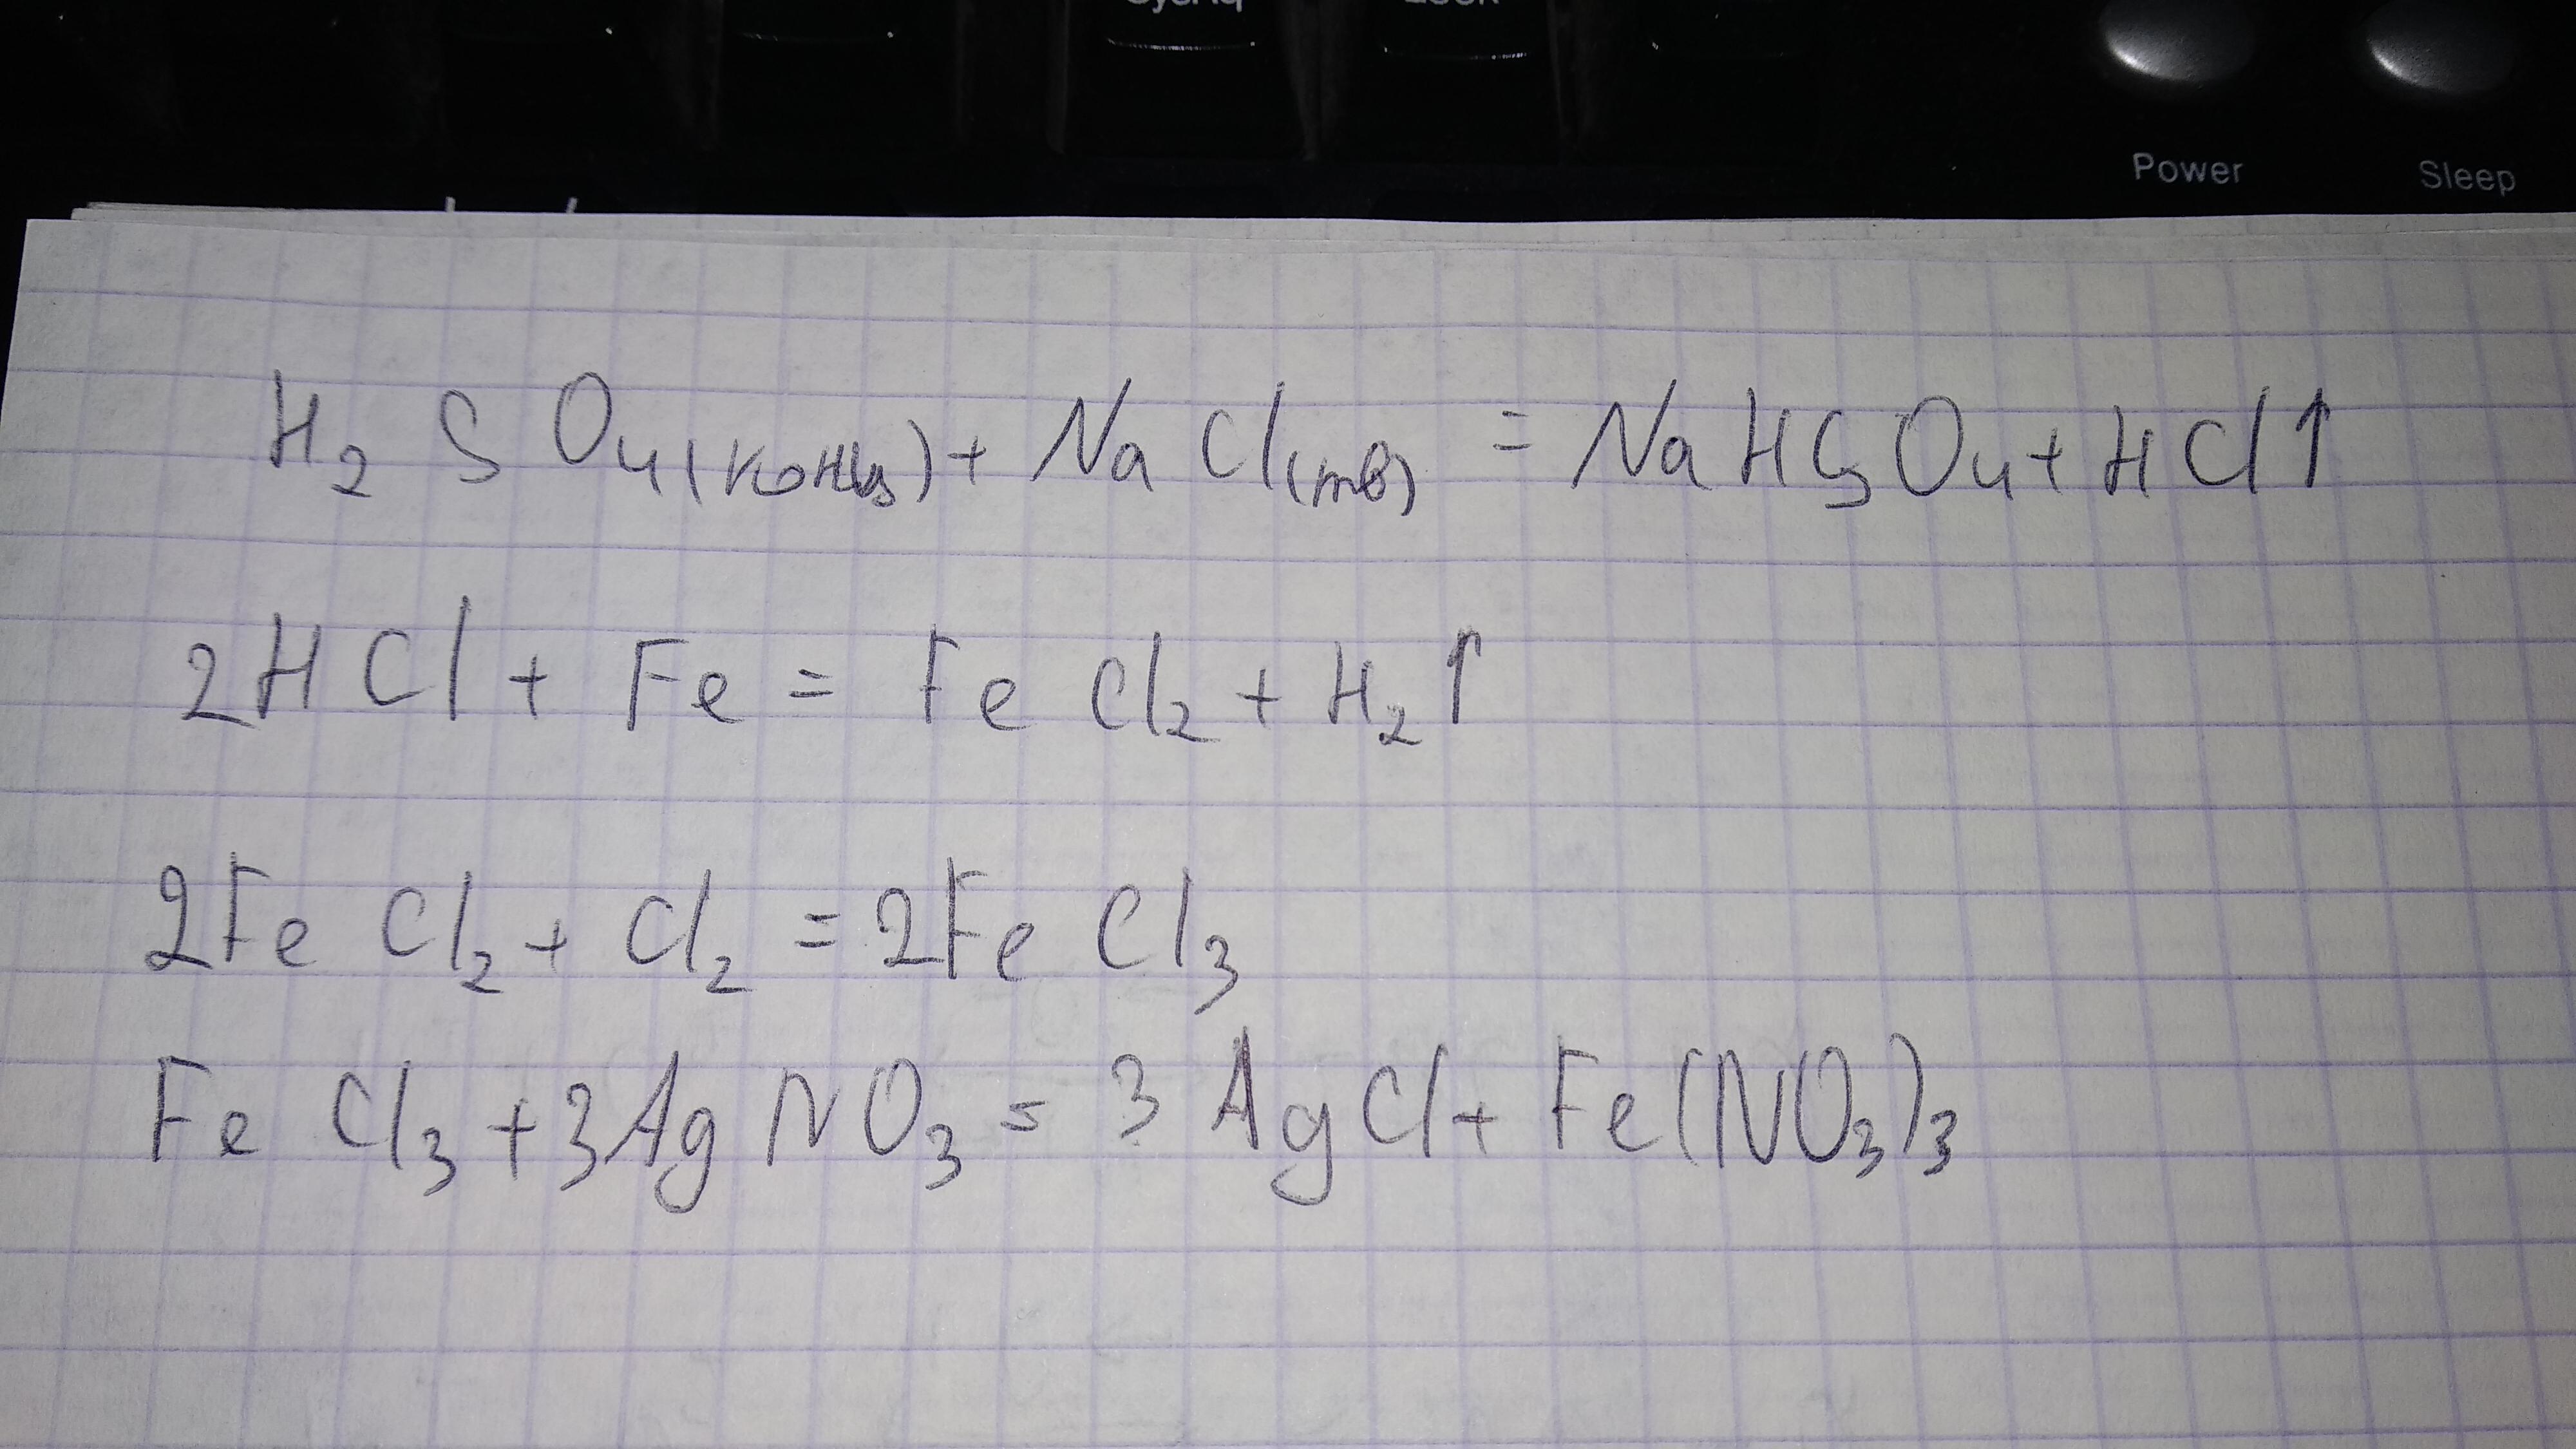 Power Sleep
H₂SO₄(конц) + NaCl(тв) = NaHSO₄ + HCl↑
2HCl + Fe = FeCl₂ + H₂↑
2FeCl₂ + Cl₂ = 2FeCl₃
FeCl₃ + 3AgNO₃ = 3AgCl + Fe(NO₃)₃